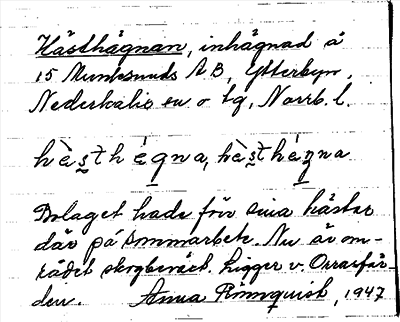 Hästhägnan, inhägnad å
15 Munksunds AB, Ytterbyn,
Nederkalix sn o tg, Norrb. l.
hȧ̀s̬th ég̠na, hȧ̀s̬thég̠na
Bolaget hade förr sina hästar
där på sommarbete. Nu är om-
rådet skogbeväxt. Ligger v. Orrarfjär-
den Anna Rönnquist, 1947